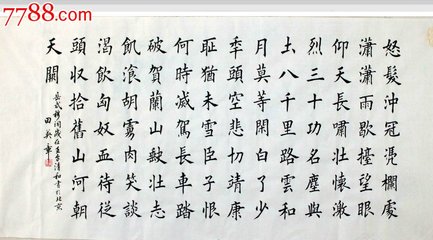 7788.com
怒髮沖冠凴欄處
瀟瀟雨歇擡望眼
仰天長嘯壯懷激
烈三十功名塵與
土八千里路雲和
月莫等閑白了少
秊頭空悲切靖康
耻猶未雪臣子恨
何時滅駕長車踏
破賀蘭山缺壯志
飢飡胡虜肉笑談
渴飲匈奴血待從
頭收拾舊山河朝
天闕
岳武穆詞歲在 清和書於北京
田英章